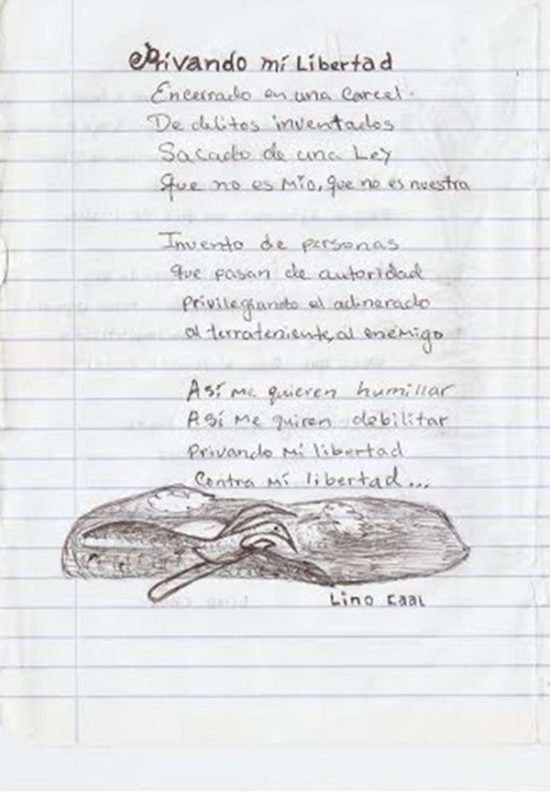 Privando mi Libertad
Encerrado en una Carcel.
De delitos inventados
Sacado de una Ley
Que no es Mio, que no es nuestra
Invento de personas
que pasan de autoridad
privilegiando el adinerado
al terrateniente, al enemigo
Así me quieren humillar
Así me quiren debilitar
Privando mi libertad
Contra mi libertad...
Lino Caal